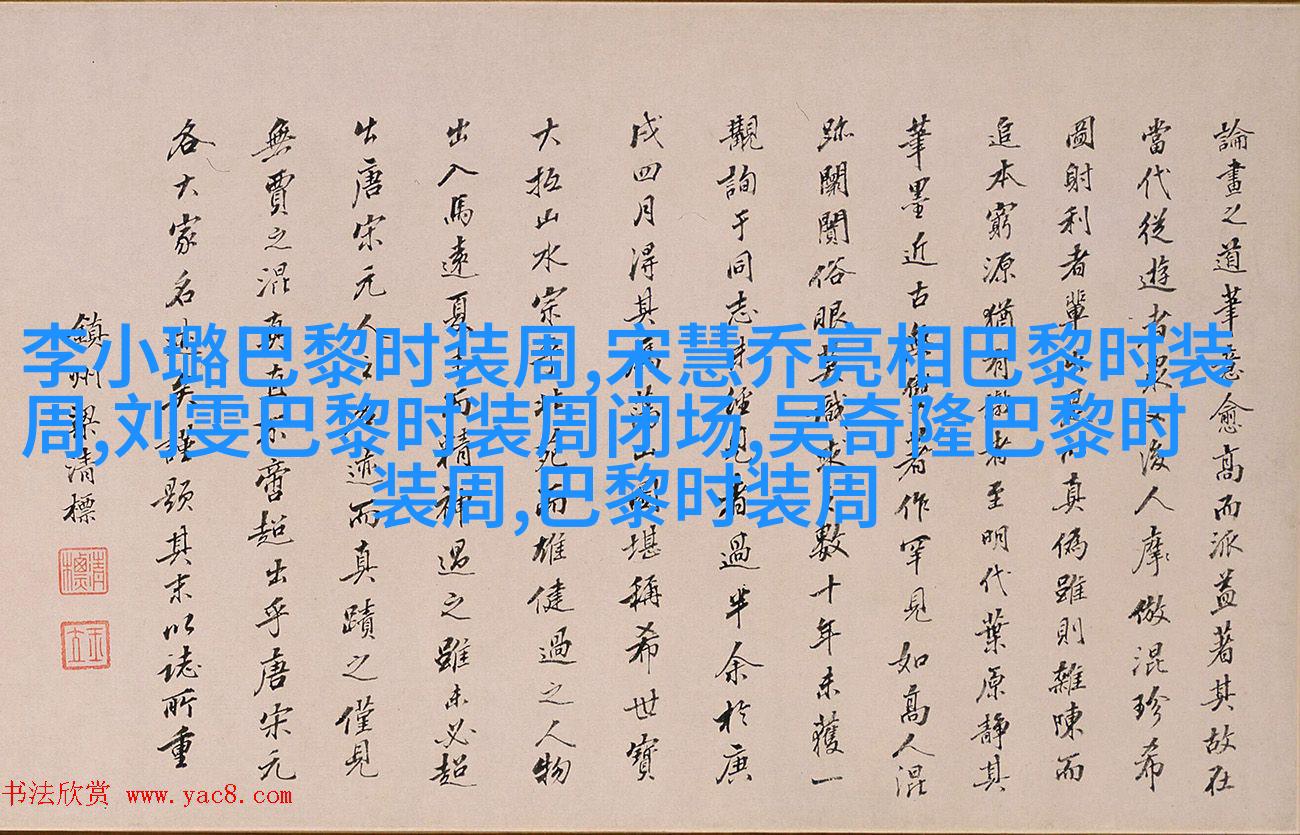 李小璐巴黎时装周,宋慧乔亮相巴黎时装
周,刘雯巴黎时装周闭场,吴奇隆巴黎时
装周,巴黎时装周
論畫之道筆意愈高而派益著其故在
當代從遊者後人摩倣混珍希
圖射利者輩真偽雖則雜陳而
追本窮源猶有者至明代葉原靜其
筆墨近古者作罕見如高人混
跡闤闠俗眼莫識數十年未獲一
觀詢于同志者過半余於庚
戌四月得其堪稱希世寶
大抵山水宗苑而雄健過之人物
出入馬遠夏而精神過之雖未必超
出唐宋元人迹而真蹟之僅見
無賈之混真直不啻超出乎唐宋元
各大家名迹矣謹題其末以誌所重
鎮州梁清標
清標
书法欣赏 www.yac8.com